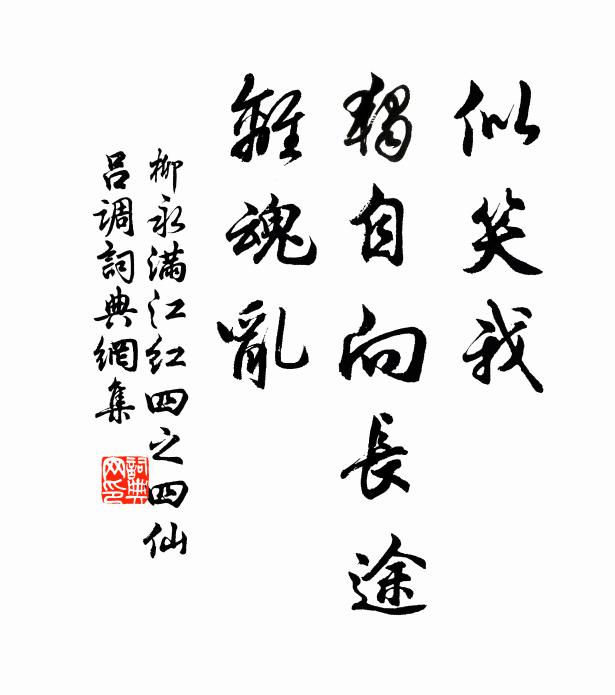 似笑我
獨自向長途
離魂亂
柳永滿江紅四之四仙
呂調詞典網集
詞典
网印